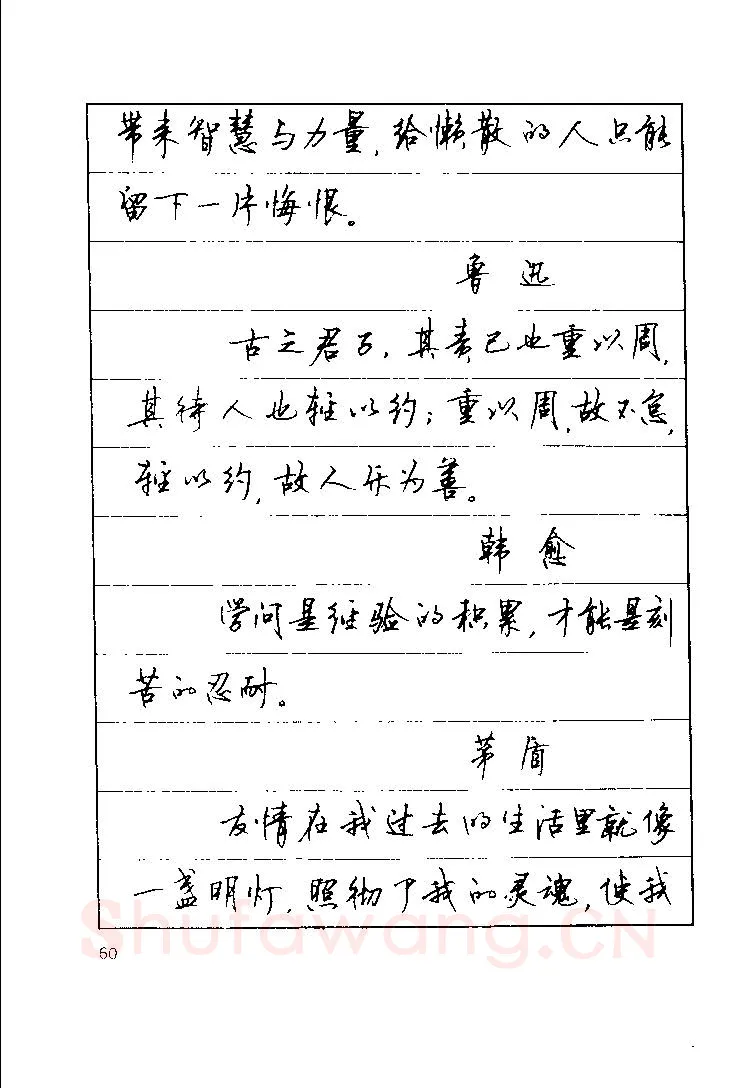 带来智慧与力量,给懒散的人只能
留下一片悔恨。
鲁迅
古之君子,其责己也重以周,
其待人也轻以约;重以周,故不怠,
轻以约,故人乐为善。
韩愈
学问是经验的积累,才能是刻
苦的忍耐。
茅盾
友情在我过去的生活里就像
一盏明灯,照彻了我的灵魂,使我
Shufawang.CN
60